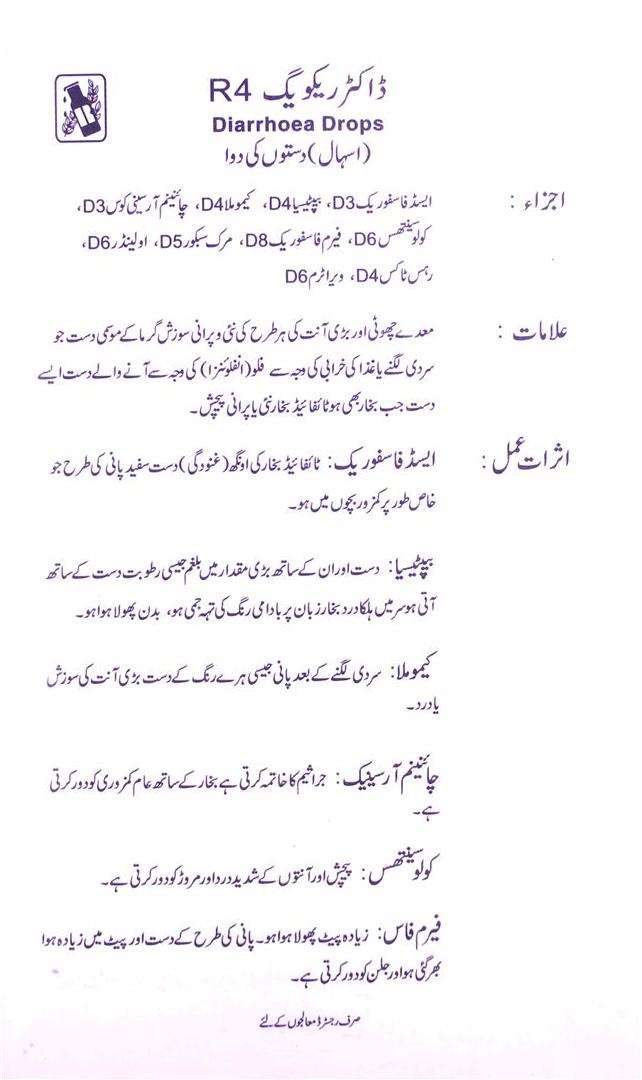 ڈاکٹر ریکویگ R4
Diarrhoea Drops
(اسہال) دستوں کی دوا
اجزاء : ایسڈ فاسفوریک D3، بیپٹیسیا D4، کیموملا D4، چائنینم آرسینی کوس D3،
کولوسینتھس D6، فیرم فاسفوریک D8، مرک سبکور D5، اولینڈر D6،
رہس ٹاکس D4، ویراٹرم D6
علامات : معدے چھوٹی اور بڑی آنت کی ہر طرح کی نئی و پرانی سوزش گرما کے موسمی دست جو
سردی لگنے یا غذا کی خرابی کی وجہ سے فلو (انفلوئنزا) کی وجہ سے آنے والے دست ایسے
دست جب بخار بھی ہو ٹائفائیڈ بخار نئی یا پرانی پیچش۔
اثرات عمل : ایسڈ فاسفوریک: ٹائفائیڈ بخار کی اونگھ (غنودگی) دست سفید پانی کی طرح جو
خاص طور پر کمزور بچوں میں ہو۔
بیپٹیسیا: دست اور ان کے ساتھ بڑی مقدار میں بلغم جیسی رطوبت دست کے ساتھ
آتی ہو سر میں ہلکا درد بخار زبان پر بادامی رنگ کی تہہ جمی ہو، بدن پھولا ہوا ہو۔
کیموملا: سردی لگنے کے بعد پانی جیسی ہرے رنگ کے دست بڑی آنت کی سوزش
یا درد۔
چائنینم آرسینیک: جراثیم کا خاتمہ کرتی ہے بخار کے ساتھ عام کمزوری کو دور کرتی
ہے۔
کولوسینتھس: پیچش اور آنتوں کے شدید درد اور مروڑ کو دور کرتی ہے۔
فیرم فاس: زیادہ پیٹ پھولا ہوا ہو۔ پانی کی طرح کے دست اور پیٹ میں زیادہ ہوا
بھر گئی ہو اور جلن کو دور کرتی ہے۔
صرف رجسٹرڈ معالجوں کے لئے